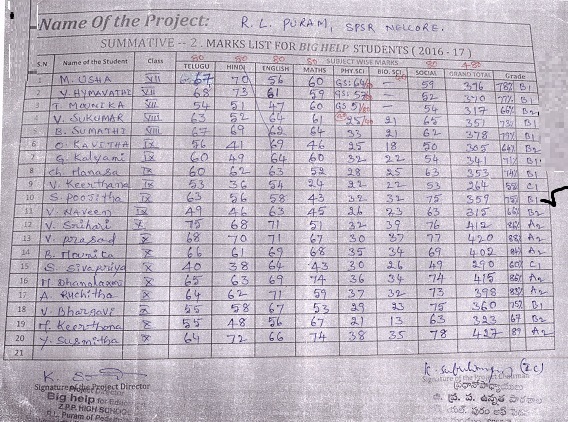 Name Of the Project: R. L. PURAM, SPSR NELLORE.
SUMMATIVE -- 2. MARKS LIST FOR BIG HELP STUDENTS ( 2016 - 17 )
80 80 80 80 SUBJECT WISE MARKS 80 480
S.N Name of the Student Class TELUGU HINDI ENGLISH MATHS PHY.SCI BIO. SCI SOCIAL GRAND TOTAL Grade
1 M. USHA VII 67 70 56 60 GS: 64 - 59 376 78% B1
2 V. HYMAVATHI VII 68 73 61 59 GS: 57 - 52 370 77% B1
3 T. MOUNIKA 54 51 47 60 GS 51 - 54 317 66% B2
4 V. SUKUMAR VIII 63 52 64 61 25 21 65 351 73% B1
5 B. SUMATHI VIII 67 69 62 64 33 21 62 378 79% B1
6 O. KAVITHA IX 56 41 69 46 25 18 50 305 64% B2
7 G. Kalyani IX 60 49 64 60 32 22 54 341 71% B1
8 Ch. Manasa IX 60 62 63 52 28 25 63 353 74% B1
9 V. Keerthana IX 53 36 54 24 22 22 53 264 55% C1
10 S. POOJITHA IX 63 56 58 43 32 32 75 359 75% B1
11 V. NAVEEN IX 49 46 63 45 26 23 63 315 66% B2
12 V. Srihari X 75 68 71 51 32 39 76 412 86% A2
13 V. prasad X 68 70 71 67 30 37 77 420 88% A2
14 B. Mounica X 66 61 69 68 35 34 69 402 84% A2
15 S. Sivapriya X 40 38 64 43 30 26 49 290 60% C1
16 M. Dhanalaxmi X 65 63 69 74 36 34 74 415 86% A2
17 A. Ruchitha X 64 62 71 59 37 32 73 398 83% A2
18 V. Bhargavi X 55 58 67 53 29 23 75 360 75% B1
19 M. Keerthana X 55 48 56 67 21 13 63 323 67 B2
20 Y. Susmitha X 64 72 66 74 38 35 78 427 89 A2
21
Signature of the Project Director
Big help for
Z.P.P. HIGH SCHOOL
Puram of
Signature of the
ప్రధానోపాధ్యాయులు